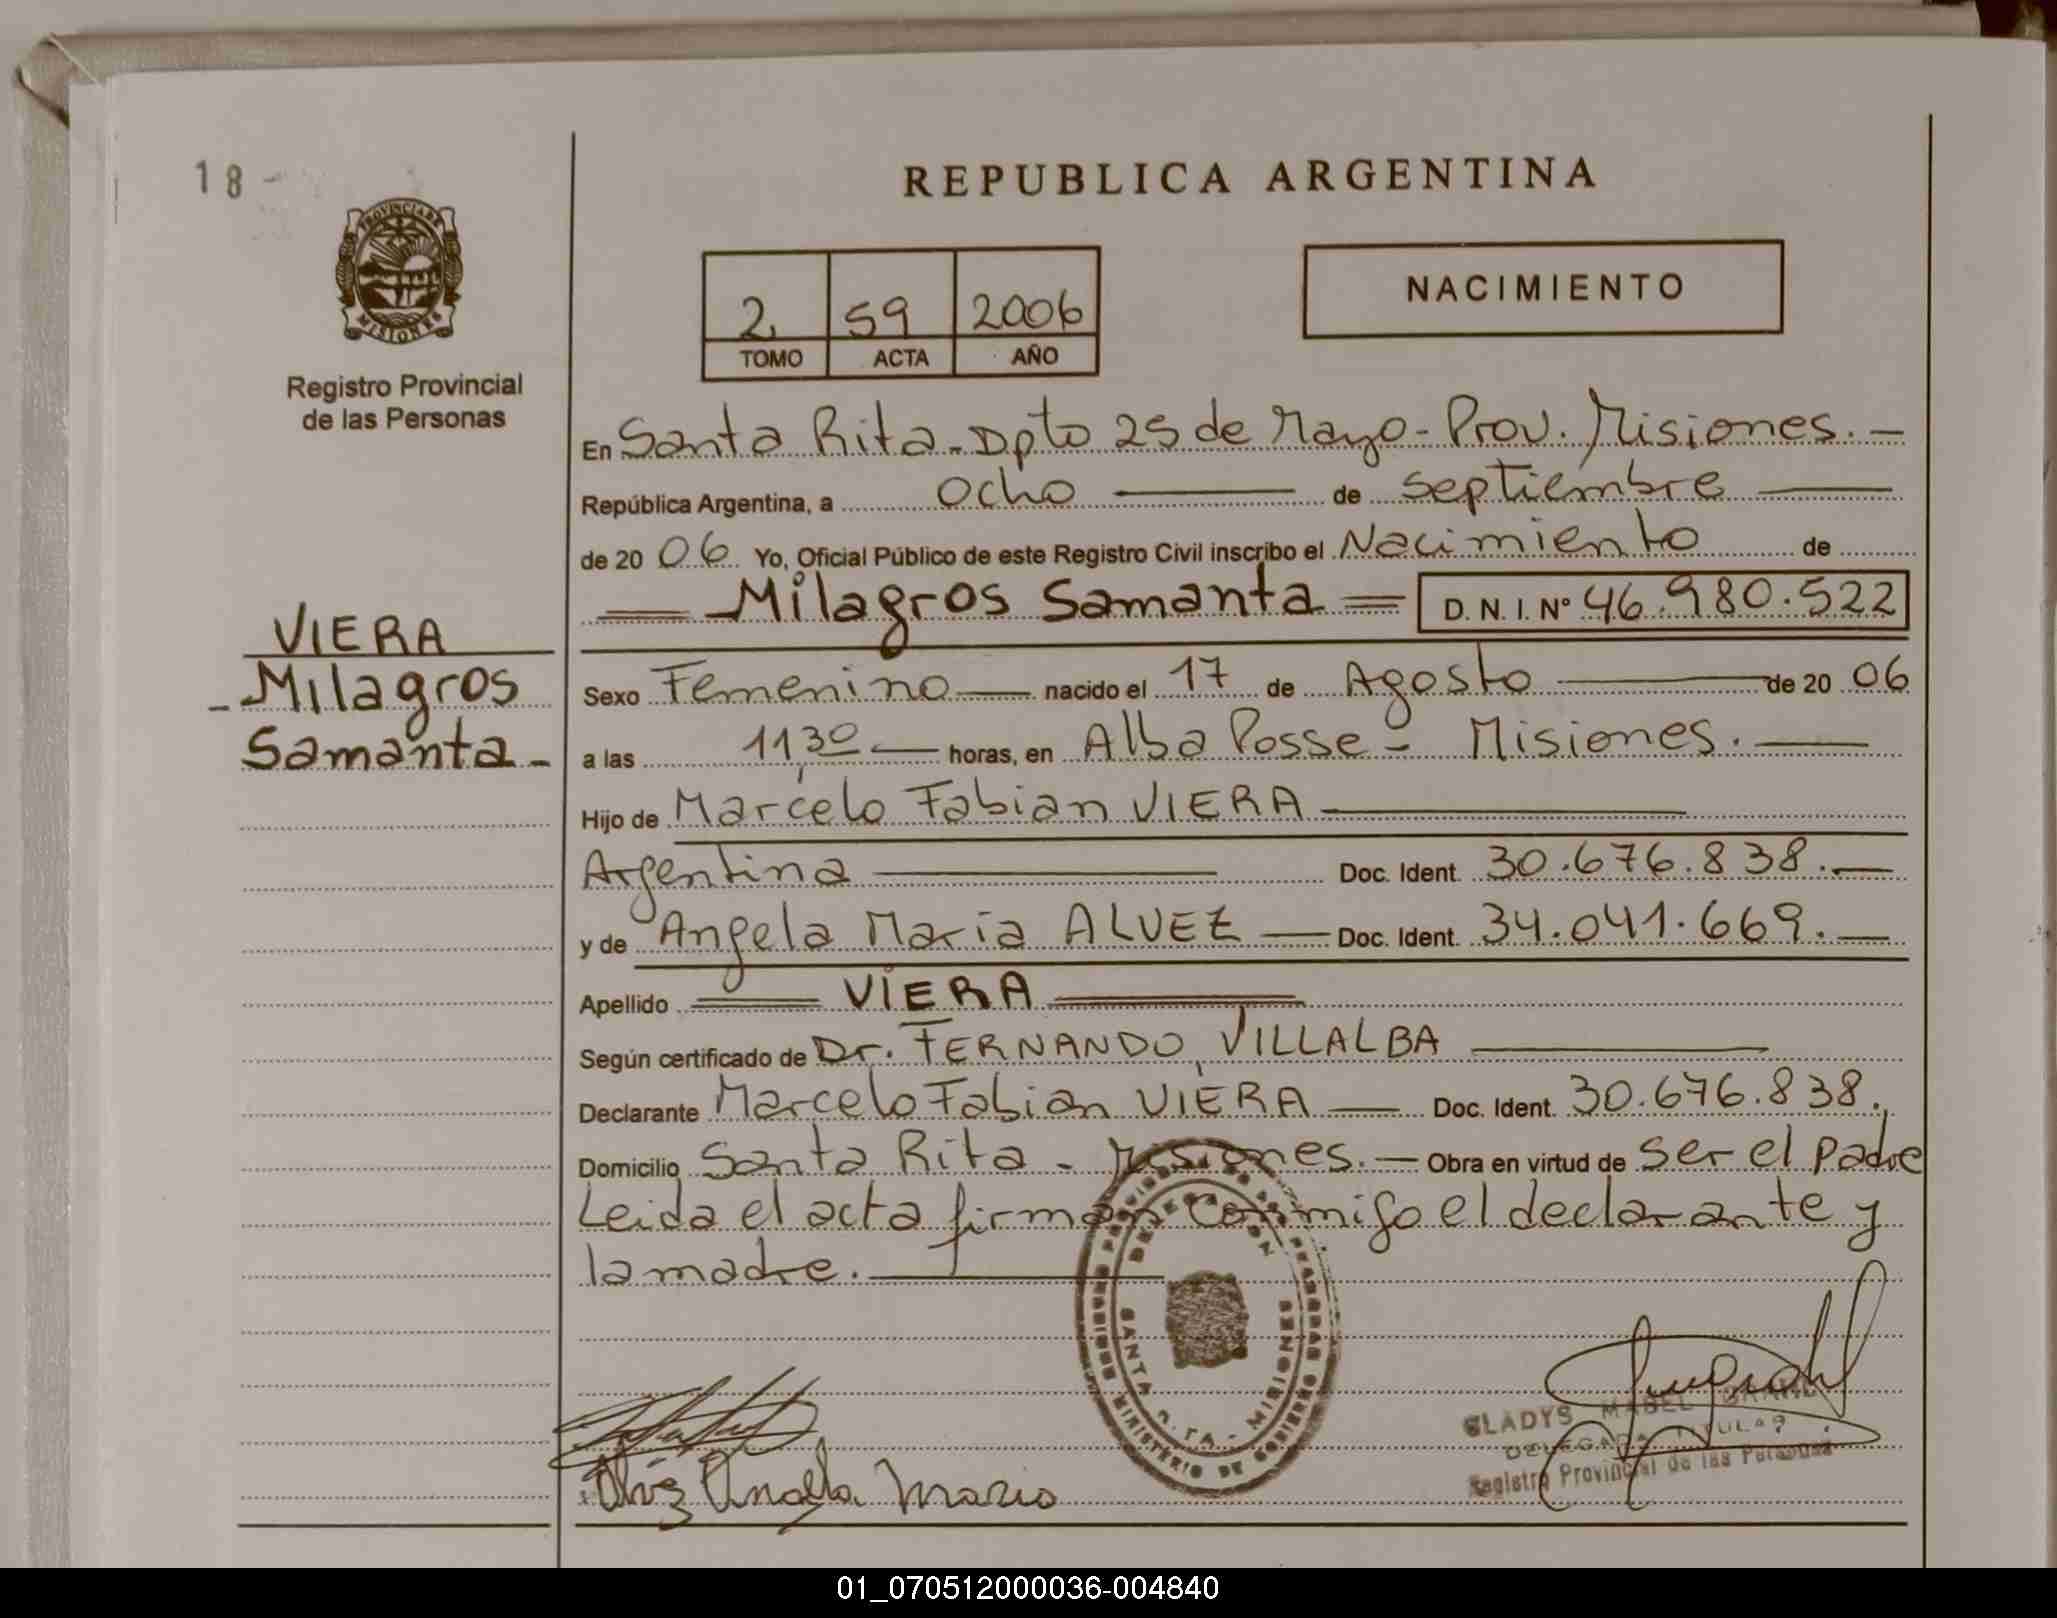 18
REPUBLICA ARGENTINA
PROVINCIA DE
MISIONES
Registro Provincial
de las Personas
2 59 2006
TOMO ACTA AÑO
NACIMIENTO
En Santa Rita - Dpto 25 de Mayo - Prov. Misiones. -
República Argentina, a Ocho de septiembre
de 20 06 Yo, Oficial Público de este Registro Civil inscribo el Nacimiento de
Milagros Samanta D. N. I. Nº 46.980.522
VIERA
- Milagros
Samanta -
Sexo Femenino nacido el 17 de Agosto de 20 06
a las 11,30 horas, en Alba Posse - Misiones.
Hijo de Marcelo Fabian VIERA
Argentina Doc. Ident. 30.676.838. -
y de Angela Maria ALVEZ Doc. Ident. 34.041.669. -
Apellido VIERA
Según certificado de Dr. FERNANDO VILLALBA
Declarante Marcelo Fabian VIERA Doc. Ident. 30.676.838.
Domicilio Santa Rita - Misiones. - Obra en virtud de ser el padre
Leida el acta firman conmigo el declarante y
la madre.
DELEGACION
SANTA RITA - MISIONES
MINISTERIO DE GOBIERNO
GLADYS MABEL
DELEGADA TITULAR
Registro Provincial de las Personas
01_070512000036-004840